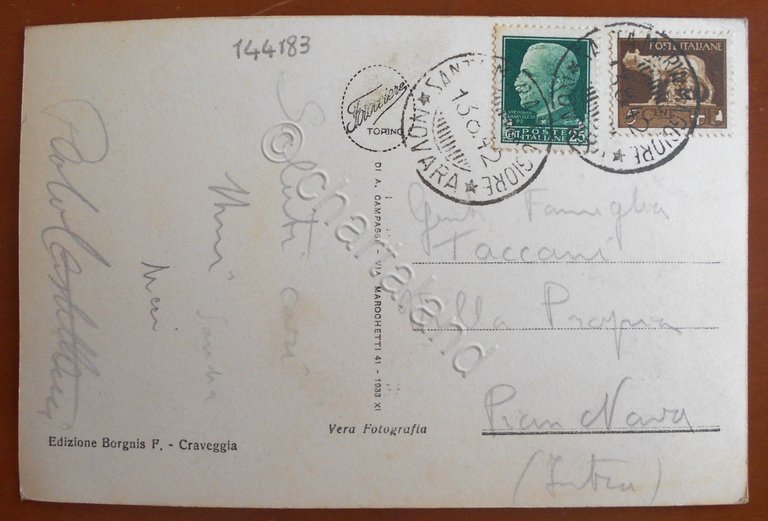 144183
Saluti cari
Sandra
TORINO
DI A. CAMPASSI - VIA MAROCHETTI 41 - 1933 XI
SANTA MARIA MAGGIORE
NOVARA
13.8.42
POSTE ITALIANE
CENT 25
POSTE ITALIANE
5 CENT
Gent. Famiglia
Taccani
Villa Propria
Pian Nava
(Intra)
Vera Fotografia
Edizione Borgnis F. - Craveggia
chartaland